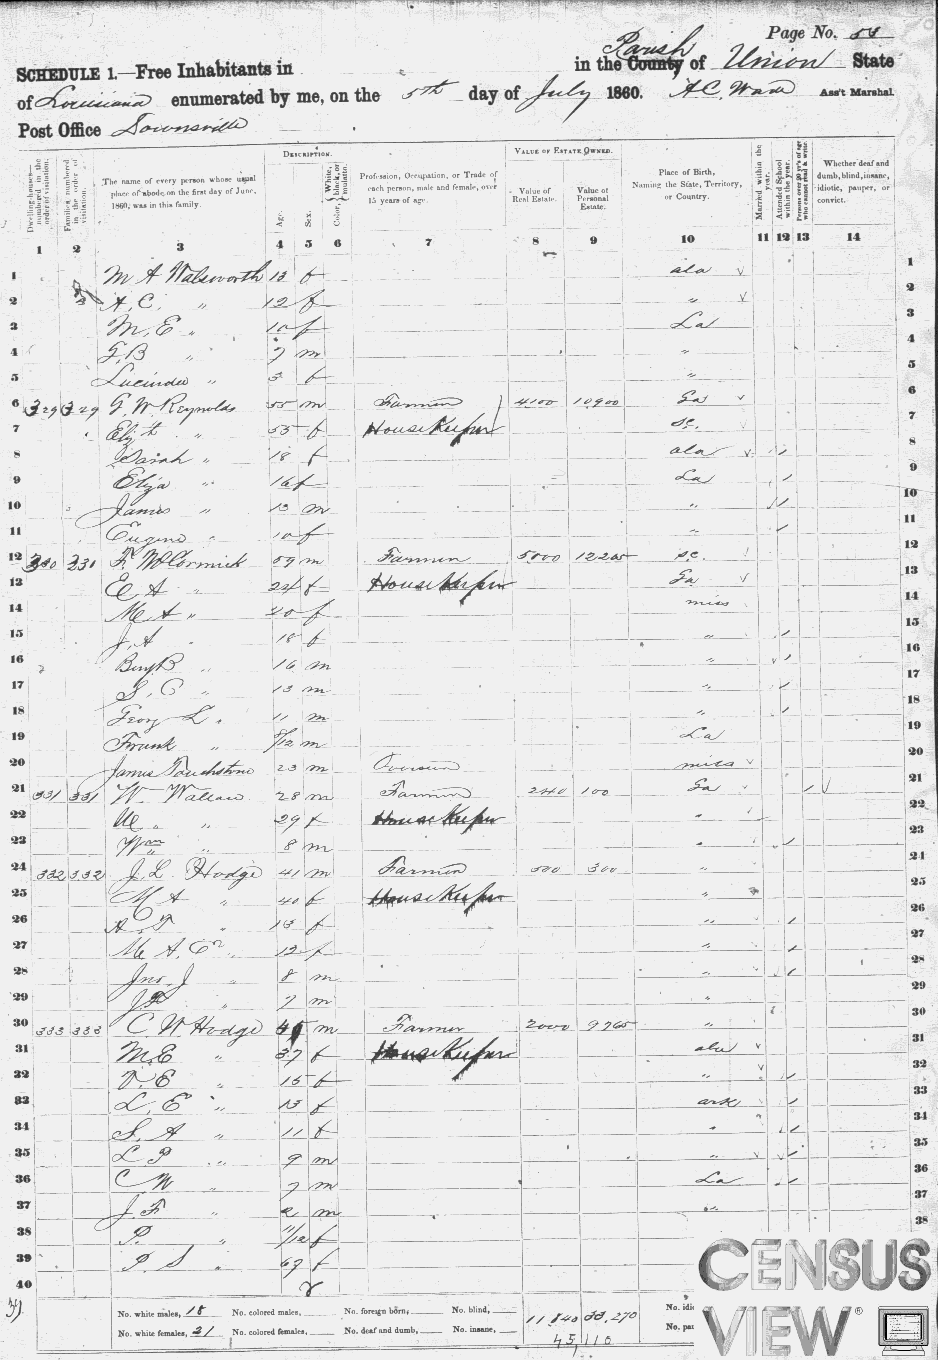 Page No. 54
SCHEDULE 1.—Free Inhabitants in in the County Parish of Union State
of Louisiana enumerated by me, on the 5th day of July 1860. A C. Wade Ass't Marshal.
Post Office Downsville
Dwelling-houses— numbered in the order of visitation.
Families numbered in the order of visitation.
The name of every person whose usual place of abode on the first day of June, 1860, was in this family.
DESCRIPTION.
Age.
Sex.
Color, White, black, or mulatto.
Profession, Occupation, or Trade of each person, male and female, over 15 years of age.
VALUE OF ESTATE OWNED.
Value of Real Estate.
Value of Personal Estate.
Place of Birth, Naming the State, Territory, or Country.
Married within the year.
Attended School within the year.
Persons over 20 y'rs of age who cannot read & write.
Whether deaf and dumb, blind, insane, idiotic, pauper, or convict.
1 2 3 4 5 6 7 8 9 10 11 12 13 14
1 M A Walsworth 13 f ala 1
2 A, C, " 12 f " 2
3 M, E " 10 f La 3
4 G, B " 7 m " 4
5 Lucinda " 5 f " 5
6 329 329 G. W Reynolds 55 m Farmer 4100 10900 Ga 6
7 Elizth " 55 f House Keeper sc. 7
8 Sarah " 18 f ala 8
9 Eliza " 16 f La 9
10 James " 13 m " 10
11 Eugene " 10 f 11
12 330 330 F. McCormick 59 m Farmer 5000 12205 sc. 12
13 E A " 24 f House Keeper Ga 13
14 M A " 20 f miss 14
15 J, A " 18 f " 15
16 Benj B " 16 m " 16
17 S. C " 13 m " 17
18 Georg L " 11 m " 18
19 Frank " 8/12 m La 19
20 James Touchstone 23 m Overseer miss 20
21 331 331 W. Wallace 28 m Farmer 240 100 Ga 21
22 " 29 f House Keeper " 22
23 Wm " 8 m " 23
24 332 332 J. L. Hodge 41 m Farmer 500 300 " 24
25 M A " 40 f House Keeper " 25
26 A. T " 13 f " 26
27 M A. " 12 f " 27
28 Jno. J " 8 m " 28
29 J " 7 m " 29
30 333 333 C. W Hodge 45 m Farmer 2000 9765 " 30
31 M. E " 37 f House Keeper ala 31
32 V. E " 15 f " 32
33 L. E " 13 f ark 33
34 S. A " 11 f " 34
35 L P " 9 m " 35
36 C W " 7 m La 36
37 J. F " 2 m " 37
38 P. " 11/12 f 38
39 P S " 69 f
40
39 No. white males, 18 No. colored males, No. foreign born, No. blind, 11840 33,270 No. idio
No. white females, 21 No. colored females, No. deaf and dumb, No. insane, 45,110 No. pau
CENSUS
VIEW®